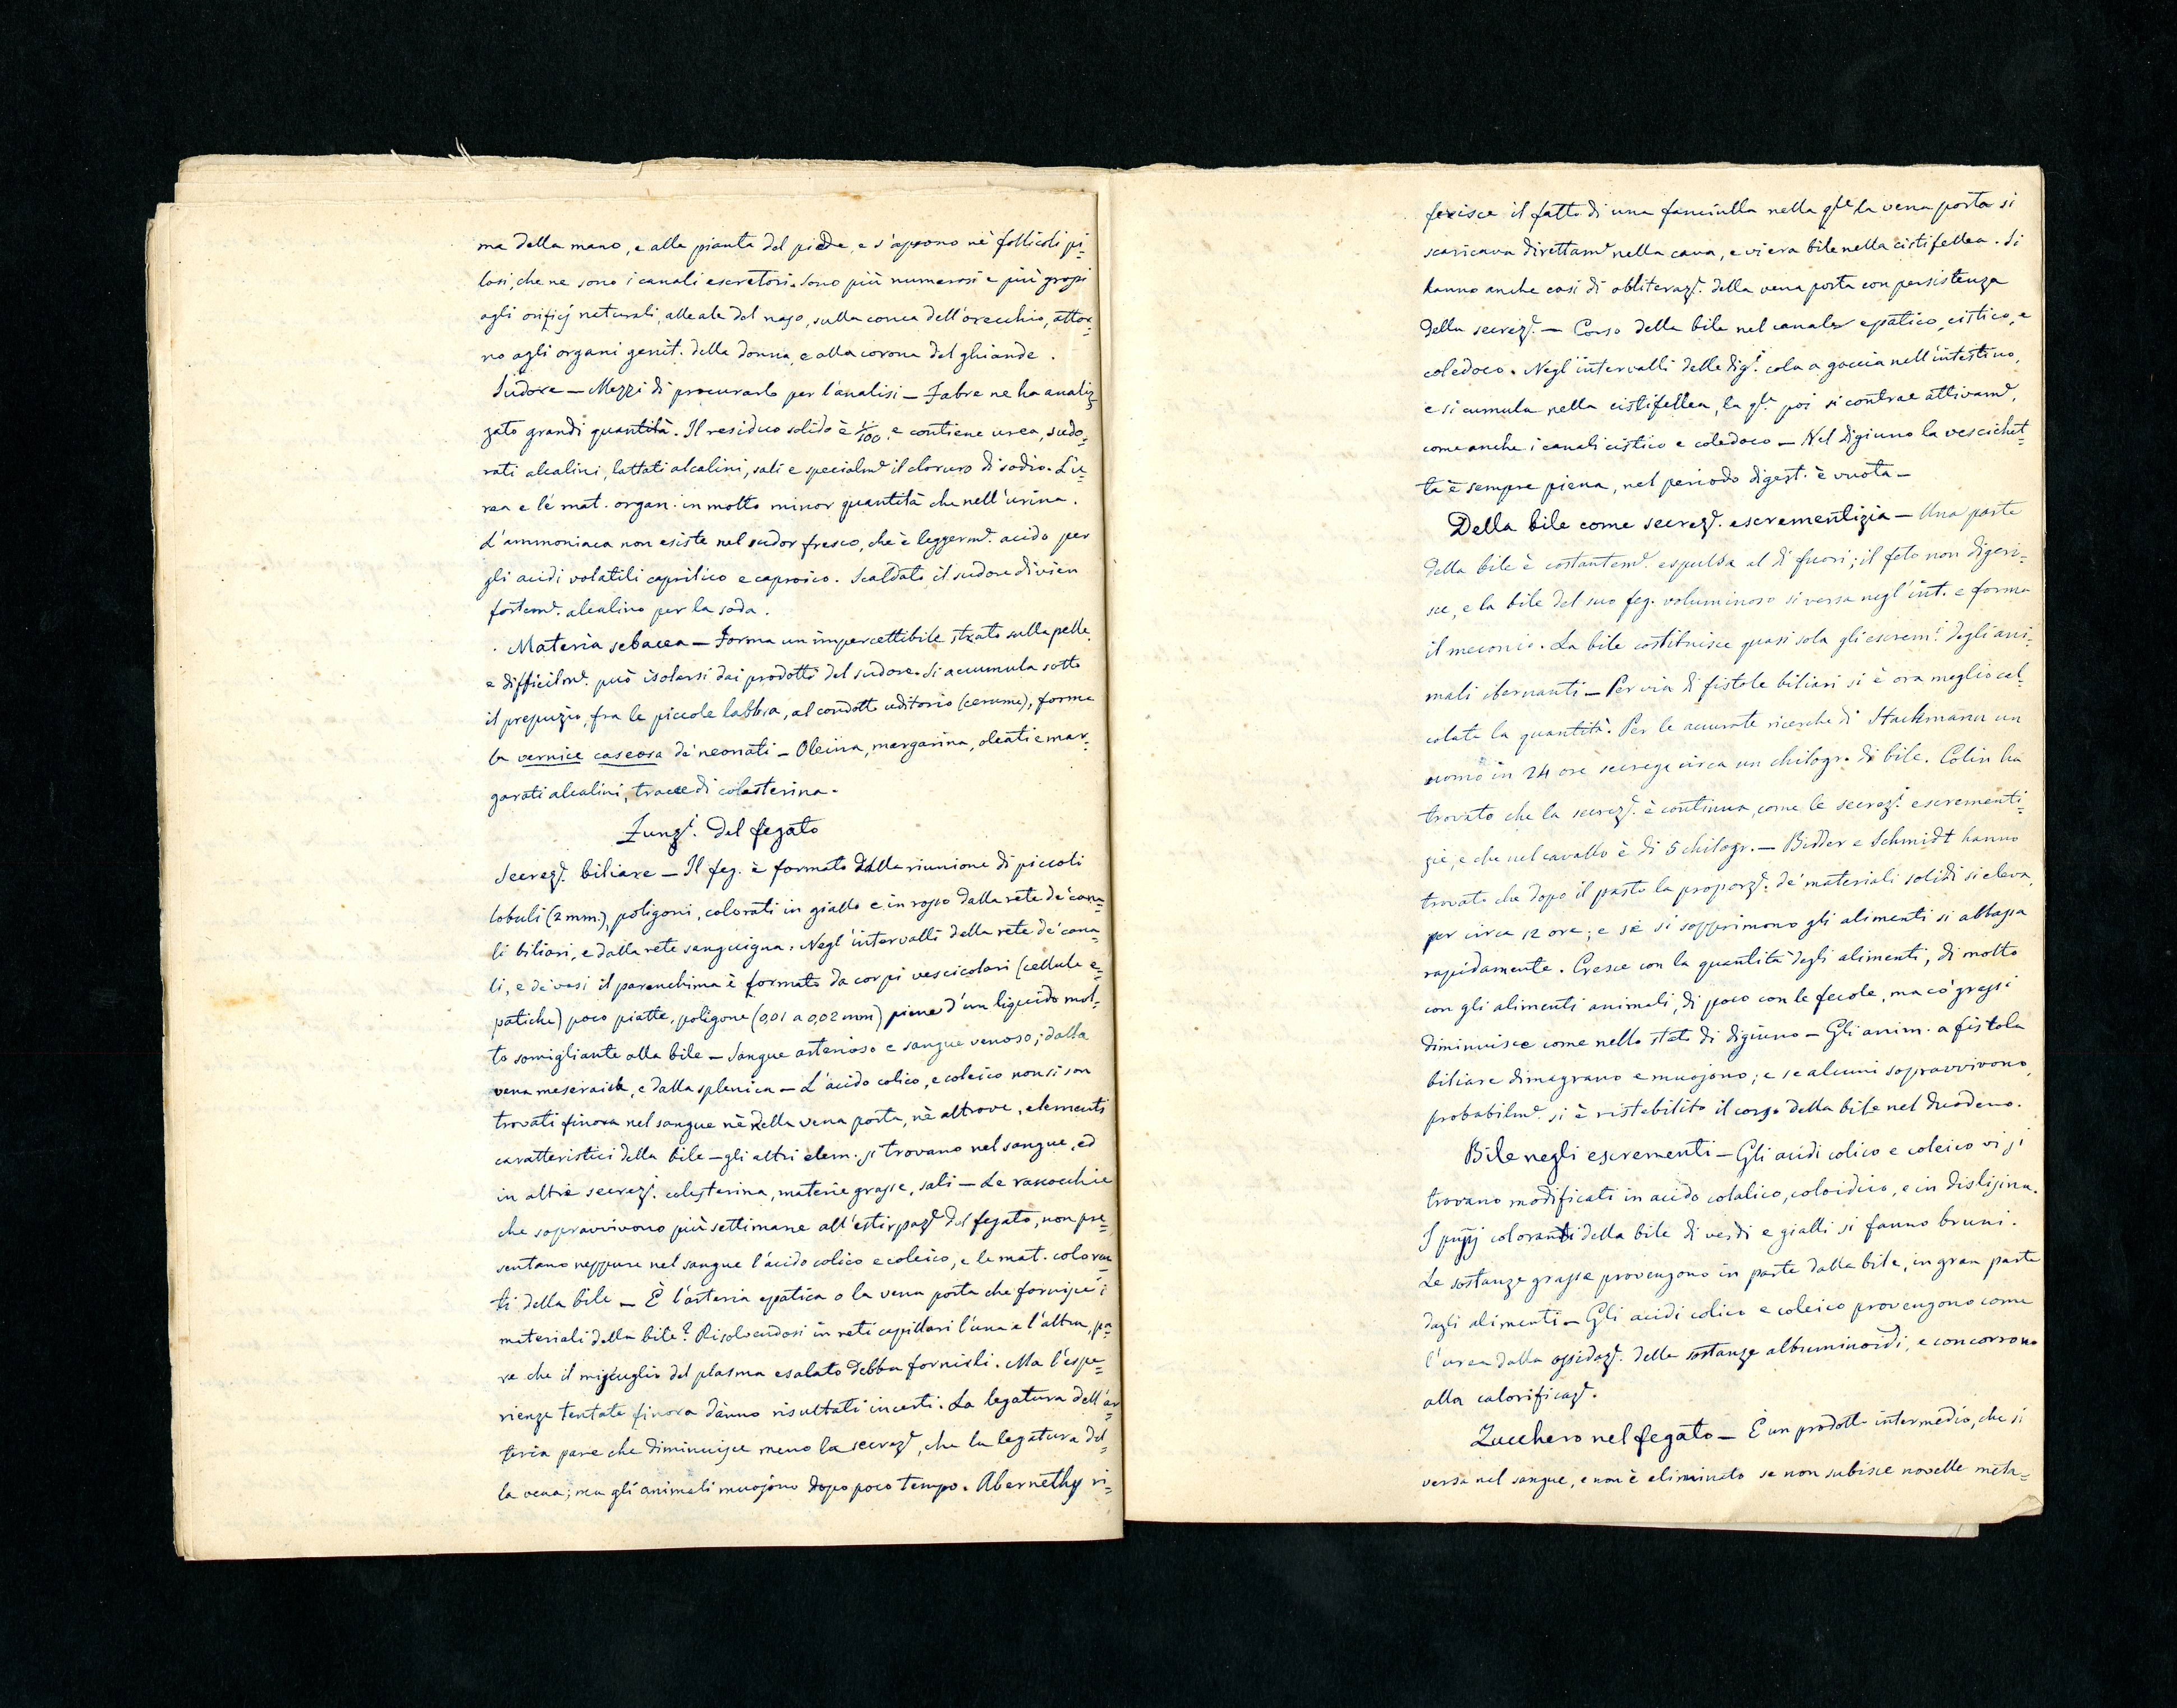 ma della mano, e alla pianta del piede, e s'aprono nè follicoli pi=
losi, che ne sono i canali escretori. Sono più numerosi e più grossi
agli orificj naturali, alle ale del naso, sulla conca dell'orecchio, attor=
no agli organi genit. della donna, e alla corona del ghiande.
Sudore — Mezzi di procurarlo per l'analisi — Fabre ne ha analiz=
zato grandi quantità. Il residuo solido è 1/100, e contiene urea, sudo=
rati alcalini, lattati alcalini, sali e specialm.e il cloruro di sodio. L'u=
rea e le mat. organ. in molto minor quantità che nell'urina.
L'ammoniaca non esiste nel sudor fresco, che è leggerm.e acido per
gli acidi volatili caprilico e caproico. Scaldato il sudore divien
fortem.e alcalino per la soda.
Materia sebacea — Forma un impercettibile strato sulla pelle,
e difficilm.e può isolarsi dai prodotti del sudore. Si accumula sotto
il prepuzio, fra le piccole labbra, al condotto uditorio (cerume), forma
la vernice caseosa de' neonati — Oleina, margarina, oleati e mar=
garati alcalini, tracce di colesterina.
Funz.i del fegato
Secrez.e biliare — Il feg. è formato dalla riunione di piccoli
lobuli (2 mm.), poligoni, colorati in giallo e in rosso dalla rete de' cana=
li biliari, e dalla rete sanguigna. Negl'intervalli della rete de' cana=
li, e de' vasi il parenchima è formato da corpi vescicolari (cellule e=
patiche) poco piatte, poligone (0,01 a 0,02 mm) piene d'un liquido mol=
to somigliante alla bile — Sangue arterioso e sangue venoso; dalla
vena meseraica, e dalla splenica — L'acido colico, e coleico non si son
trovati finora nel sangue nè della vena porta, nè altrove, elementi
caratteristici della bile — gli altri elem. si trovano nel sangue, ed
in altre secrez.i colesterina, materie grasse, sali — Le ranocchie
che sopravvivono più settimane all'estirpaz.e del fegato, non pre=
sentano neppure nel sangue l'acido colico e coleico, e le mat. coloran=
ti della bile — È l'arteria epatica o la vena porta che fornisce i
materiali della bile? Risolvendosi in reti capillari l'una e l'altra, pa=
re che il miscuglio del plasma esalato debba fornirli. Ma l'espe=
rienze tentate finora dànno risultati incerti. La legatura dell'ar=
teria pare che diminuisce meno la secrez.e, che la legatura del=
la vena; ma gli animali muojono dopo poco tempo. Abernethy ri=
ferisce il fatto di una fanciulla nella q.le la vena porta si
scaricava direttam.e nella cava, e vi era bile nella cistifellea. Si
hanno anche casi di obliteraz.e della vena porta con persistenza
della secrez.e — Corso della bile nel canale epatico, cistico, e
coledoco. Negl'intervalli delle dig.i cola a goccia nell'intestino,
e si cumula nella cistifellea, la q.le poi si contrae attivam.e,
come anche i canali cistico e coledoco — Nel digiuno la vescichet=
ta è sempre piena, nel periodo digest. è vuota —
Della bile come secrez.e escrementizia — Una parte
della bile è costantem.e espulsa al di fuori; il feto non digeri=
sce, e la bile del suo feg. voluminoso si versa negl'int. e forma
il meconio. La bile costituisce quasi sola gli escrem.i degli ani=
mali ibernanti — Per via di fistole biliari si è ora meglio cal=
colata la quantità. Per le accurate ricerche di Stackmann un
uomo in 24 ore secrege circa un chilogr. di bile. Colin ha
trovato che la secrez.e è continua, come le secrez.i escrementi=
zie, e che nel cavallo è di 5 chilogr. — Bidder e Schmidt hanno
trovato che dopo il pasto la proporz.e de' materiali solidi si eleva,
per circa 12 ore; e se si sopprimono gli alimenti si abbassa
rapidamente. Cresce con la quantità degli alimenti, di molto
con gli alimenti animali, di poco con le fecole, ma co' grassi
diminuisce come nello stato di digiuno — Gli anim. a fistola
biliare dimagrano e muojono; e se alcuni sopravvivono,
probabilm.e si è ristabilito il corso della bile nel duodeno.
Bile negli escrementi — Gli acidi colico e coleico vi si
trovano modificati in acido colalico, coloidico, e in dislisina.
I pnpj coloranti della bile di verdi e gialli si fanno bruni.
Le sostanze grasse provengono in parte dalla bile, in gran parte
dagli alimenti — Gli acidi colico e coleico provengono come
l'urea dalla ossidaz.e delle sostanze albuminoidi, e concorrono
alla calorificaz.e.
Zucchero nel fegato — È un prodotto intermedio, che si
versa nel sangue, e non è eliminato se non subisce novelle meta=